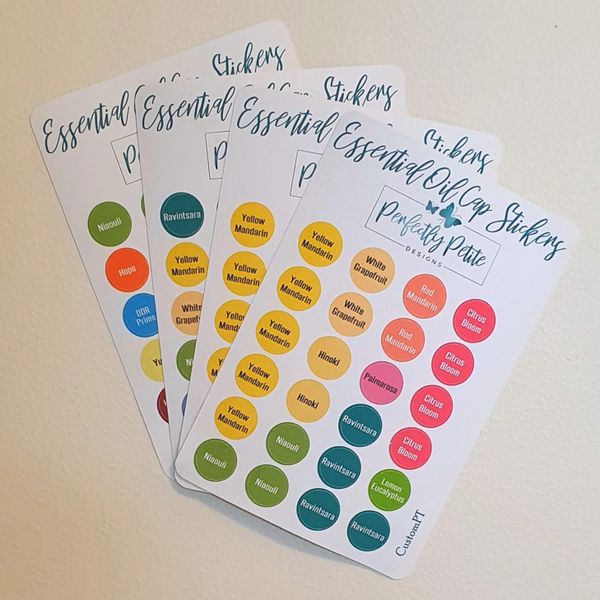 Essential
Stickers
Niaouli
Hope
DDR
Prime
Essential
Stickers
Ravintsara
Yellow
Mandarin
White
Essential
Stickers
Yellow
Mandarin
Yellow
Mandarin
Essential Oil Cap Stickers
Perfectly Petite
DESIGNS
Yellow
Mandarin
White
Grapefruit
Red
Mandarin
Citrus
Bloom
Yellow
Mandarin
White
Grapefruit
Red
Mandarin
Citrus
Bloom
Yellow
Mandarin
Hinoki
Palmarosa
Citrus
Bloom
Yellow
Mandarin
Hinoki
Ravintsara
Citrus
Bloom
Yellow
Mandarin
Niaouli
Ravintsara
Lemon
Eucalyptus
Niaouli
Niaouli
Ravintsara
Ravintsara
CustomPT